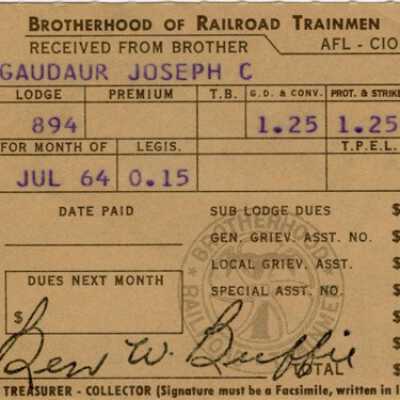 BROTHERHOOD OF RAILROAD TRAINMEN
RECEIVED FROM BROTHER AFL - CIO
GAUDAUR JOSEPH C
LODGE PREMIUM T.B. G.D. & CONV. PROT. & STRIKE
894 1.25 1.25
FOR MONTH OF LEGIS. T.P.E.L.
JUL 64 0.15
DATE PAID SUB LODGE DUES $
GEN. GRIEV. ASST. NO. $
LOCAL GRIEV. ASST. $
DUES NEXT MONTH SPECIAL ASST. NO. $
$
BROTHERHOOD
Ben W. Buffie
TOTAL $
TREASURER - COLLECTOR (Signature must be a Facsimile, written in I